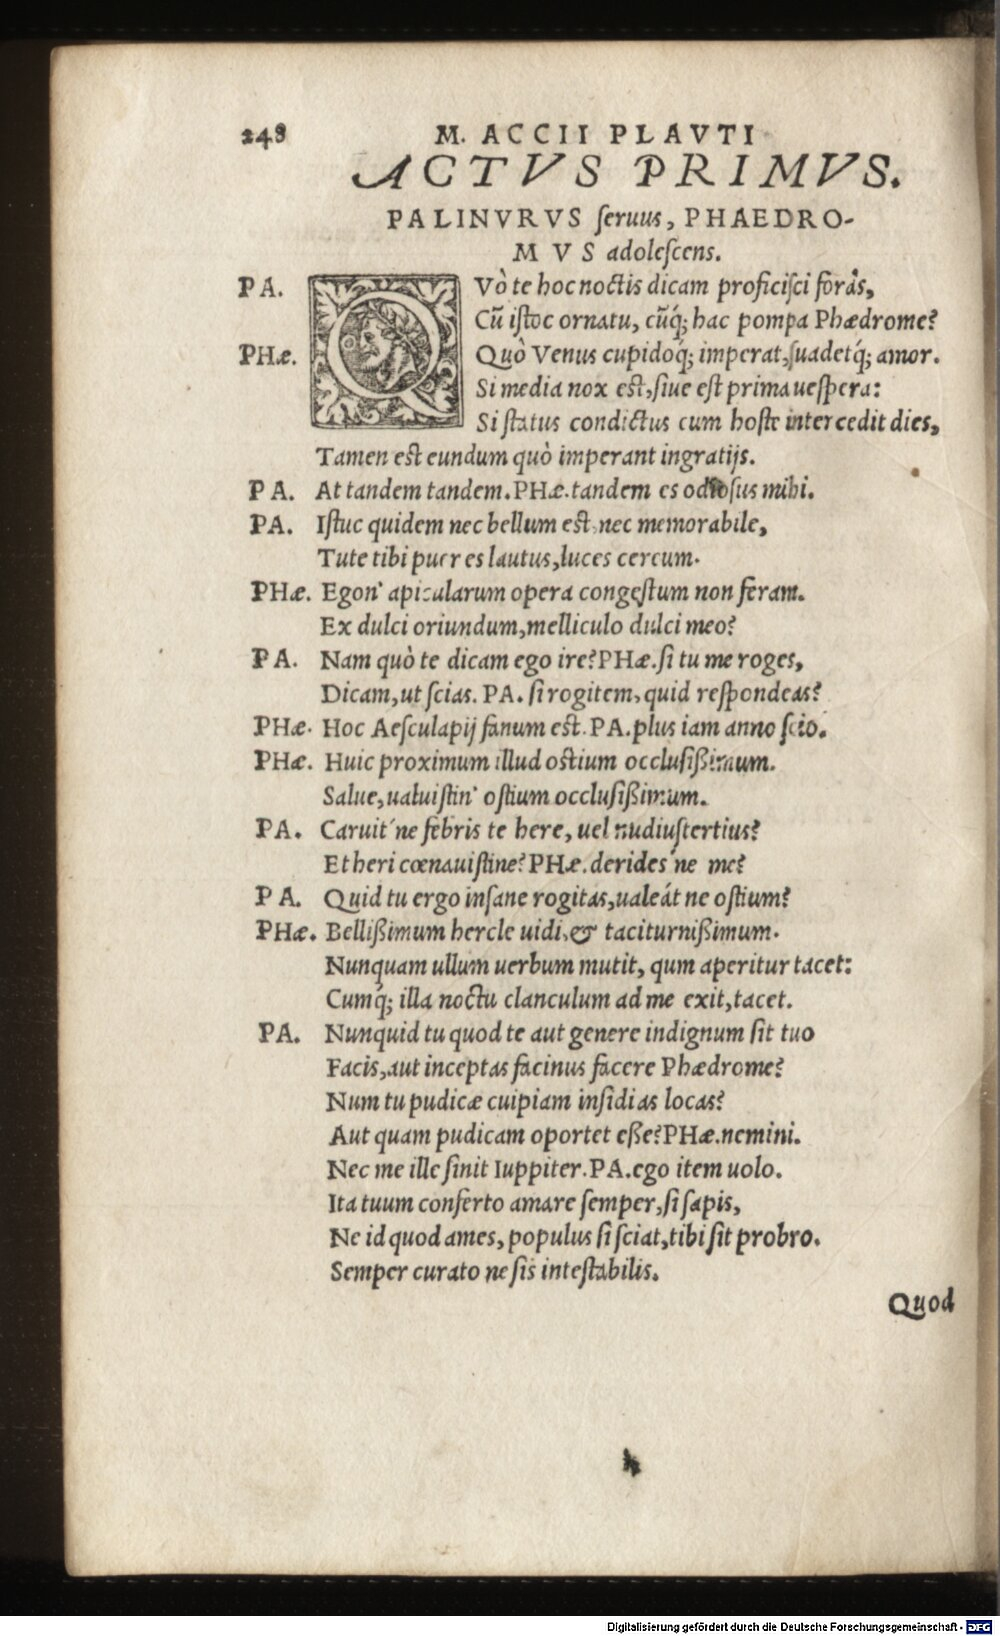 248 M. ACCII PLAVTI
ACTVS PRIMVS.
PALINVRVS ſeruus, PHAEDRO-
MVS adoleſcens.
PA. QVò te hoc noctis dicam proficiſci forâs,
Cũ iſtoc ornatu, cũq́; hac pompa Phædrome?
PHæ. Quò Venus cupidoq́; imperat, ſuadetq́; amor.
Si media nox eſt, ſiue eſt prima ueſpera:
Si ſtatus condictus cum hoſte intercedit dies,
Tamen eſt eundum quò imperant ingratijs.
PA. At tandem tandem. PHæ. tandem es odioſus mihi.
PA. Iſtuc quidem nec bellum eſt, nec memorabile,
Tute tibi puer es lautus, luces cereum.
PHæ. Egon' apicularum opera congeſtum non feram.
Ex dulci oriundum, melliculo dulci meo?
PA. Nam quò te dicam ego ire? PHæ. ſi tu me roges,
Dicam, ut ſcias. PA. ſi rogitem, quid reſpondeas?
PHæ. Hoc Aeſculapij fanum eſt. PA. plus iam anno ſcio.
PHæ. Huic proximum illud oſtium occluſißimum.
Salue, ualuiſtin' oſtium occluſißimum.
PA. Caruit'ne febris te here, uel nudiuſtertius?
Et heri cœnauiſtine? PHæ. derides'ne me?
PA. Quid tu ergo inſane rogitas, ualeát ne oſtium?
PHæ. Bellißimum hercle uidi, & taciturnißimum.
Nunquam ullum uerbum mutit, qum aperitur tacet:
Cumq́; illa noctu clanculum ad me exit, tacet.
PA. Nunquid tu quod te aut genere indignum ſit tuo
Facis, aut inceptas facinus facere Phædrome?
Num tu pudicæ cuipiam inſidias locas?
Aut quam pudicam oportet eße? PHæ. nemini.
Nec me ille ſinit Iuppiter. PA. ego item uolo.
Ita tuum conferto amare ſemper, ſi ſapis,
Ne id quod ames, populus ſi ſciat, tibi ſit probro.
Semper curato ne ſis inteſtabilis.
Quod
Digitalisierung gefördert durch die Deutsche Forschungsgemeinschaft - DFG